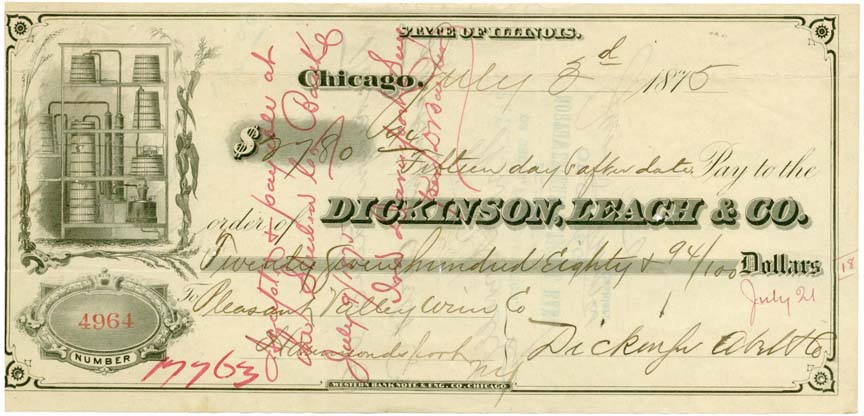 STATE OF ILLINOIS.
Chicago, July 3d 1875
$2780 94
Fifteen days after date Pay to the
order of DICKINSON, LEACH & CO.
Twenty Seven hundred Eighty & 94/100 Dollars
To Pleasant Valley Wine Co
Hammondsport
NY
4964
NUMBER
17763
July 21
18
Accepted & payable at
the
Bank
July 9/75
WESTERN BANK NOTE & ENG. CO. CHICAGO